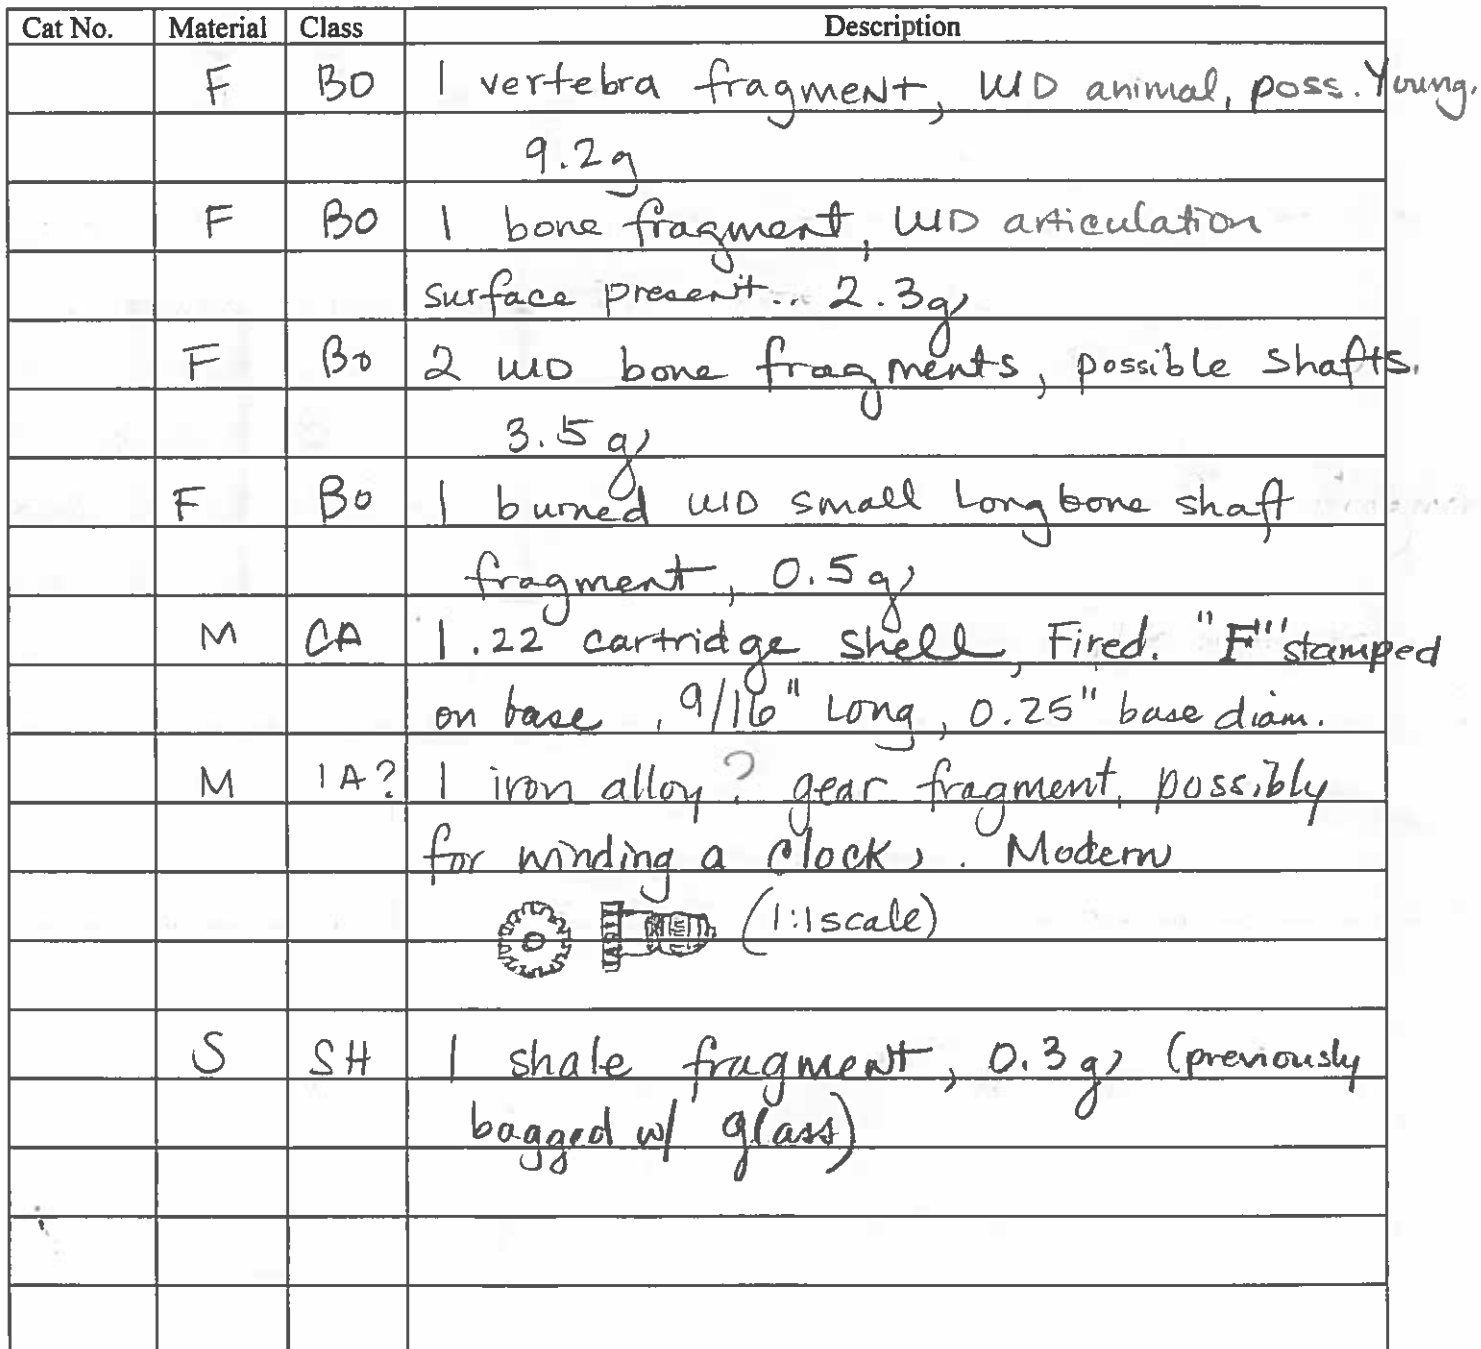 Cat No. Material Class Description
F BO 1 vertebra fragment, UID animal, poss. Young.
9.2g
F BO 1 bone fragment, UID articulation
surface present.. 2.3g
F BO 2 UID bone fragments, possible shafts.
3.5g
F BO 1 burned UID small Longbone shaft
fragment, 0.5g
M CA 1 .22 cartridge shell, Fired. "F" stamped
on base, 9/16" Long, 0.25" base diam.
M IA? 1 iron alloy? gear fragment, possibly
for winding a clock. Modern
(1:1 scale)
S SH 1 shale fragment, 0.3g (previously
bagged w/ glass)